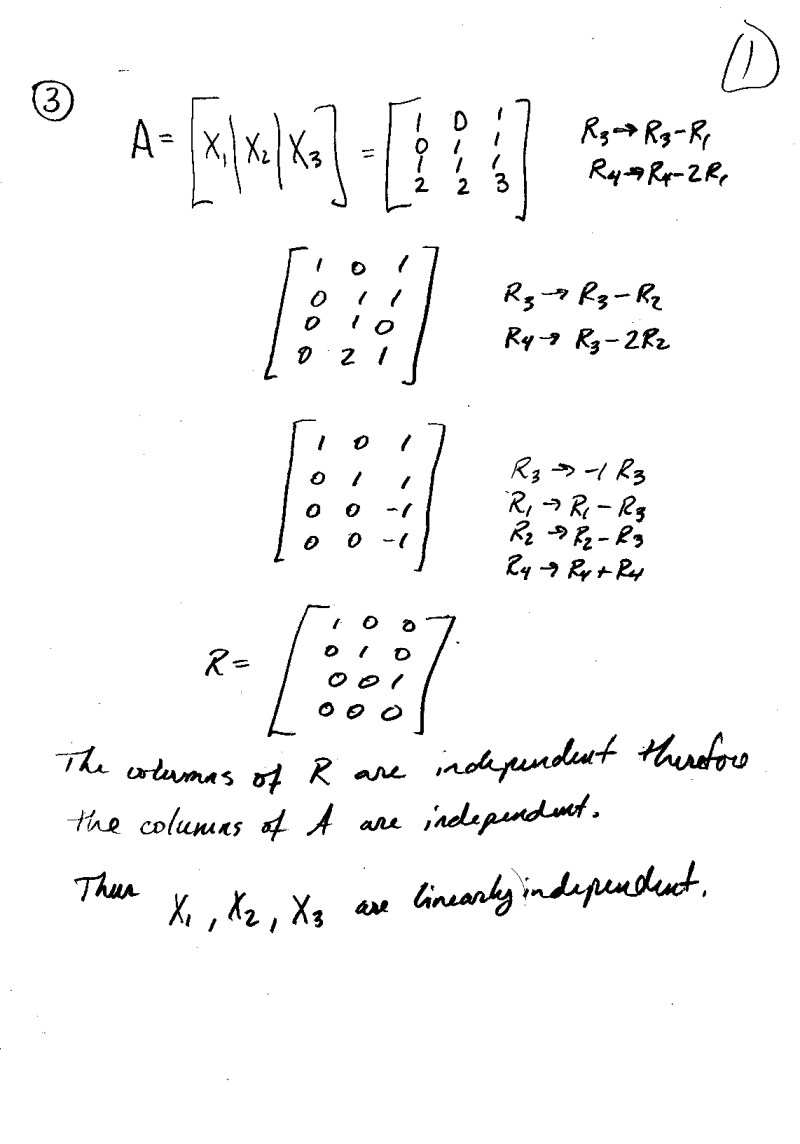 1
3
A = [X₁|X₂|X₃] = [1 0 1
0 1 1
1 1 1
2 2 3] R₃→R₃-R₁
R₄→R₄-2R₁
[1 0 1
0 1 1
0 1 0
0 2 1] R₃→R₃-R₂
R₄→R₃-2R₂
[1 0 1
0 1 1
0 0 -1
0 0 -1] R₃→-1 R₃
R₁→R₁-R₃
R₂→R₂-R₃
R₄→R₄+R₄
R = [1 0 0
0 1 0
0 0 1
0 0 0]
The columns of R are independent therefore
the columns of A are independent.
Thus X₁, X₂, X₃ are linearly independent.